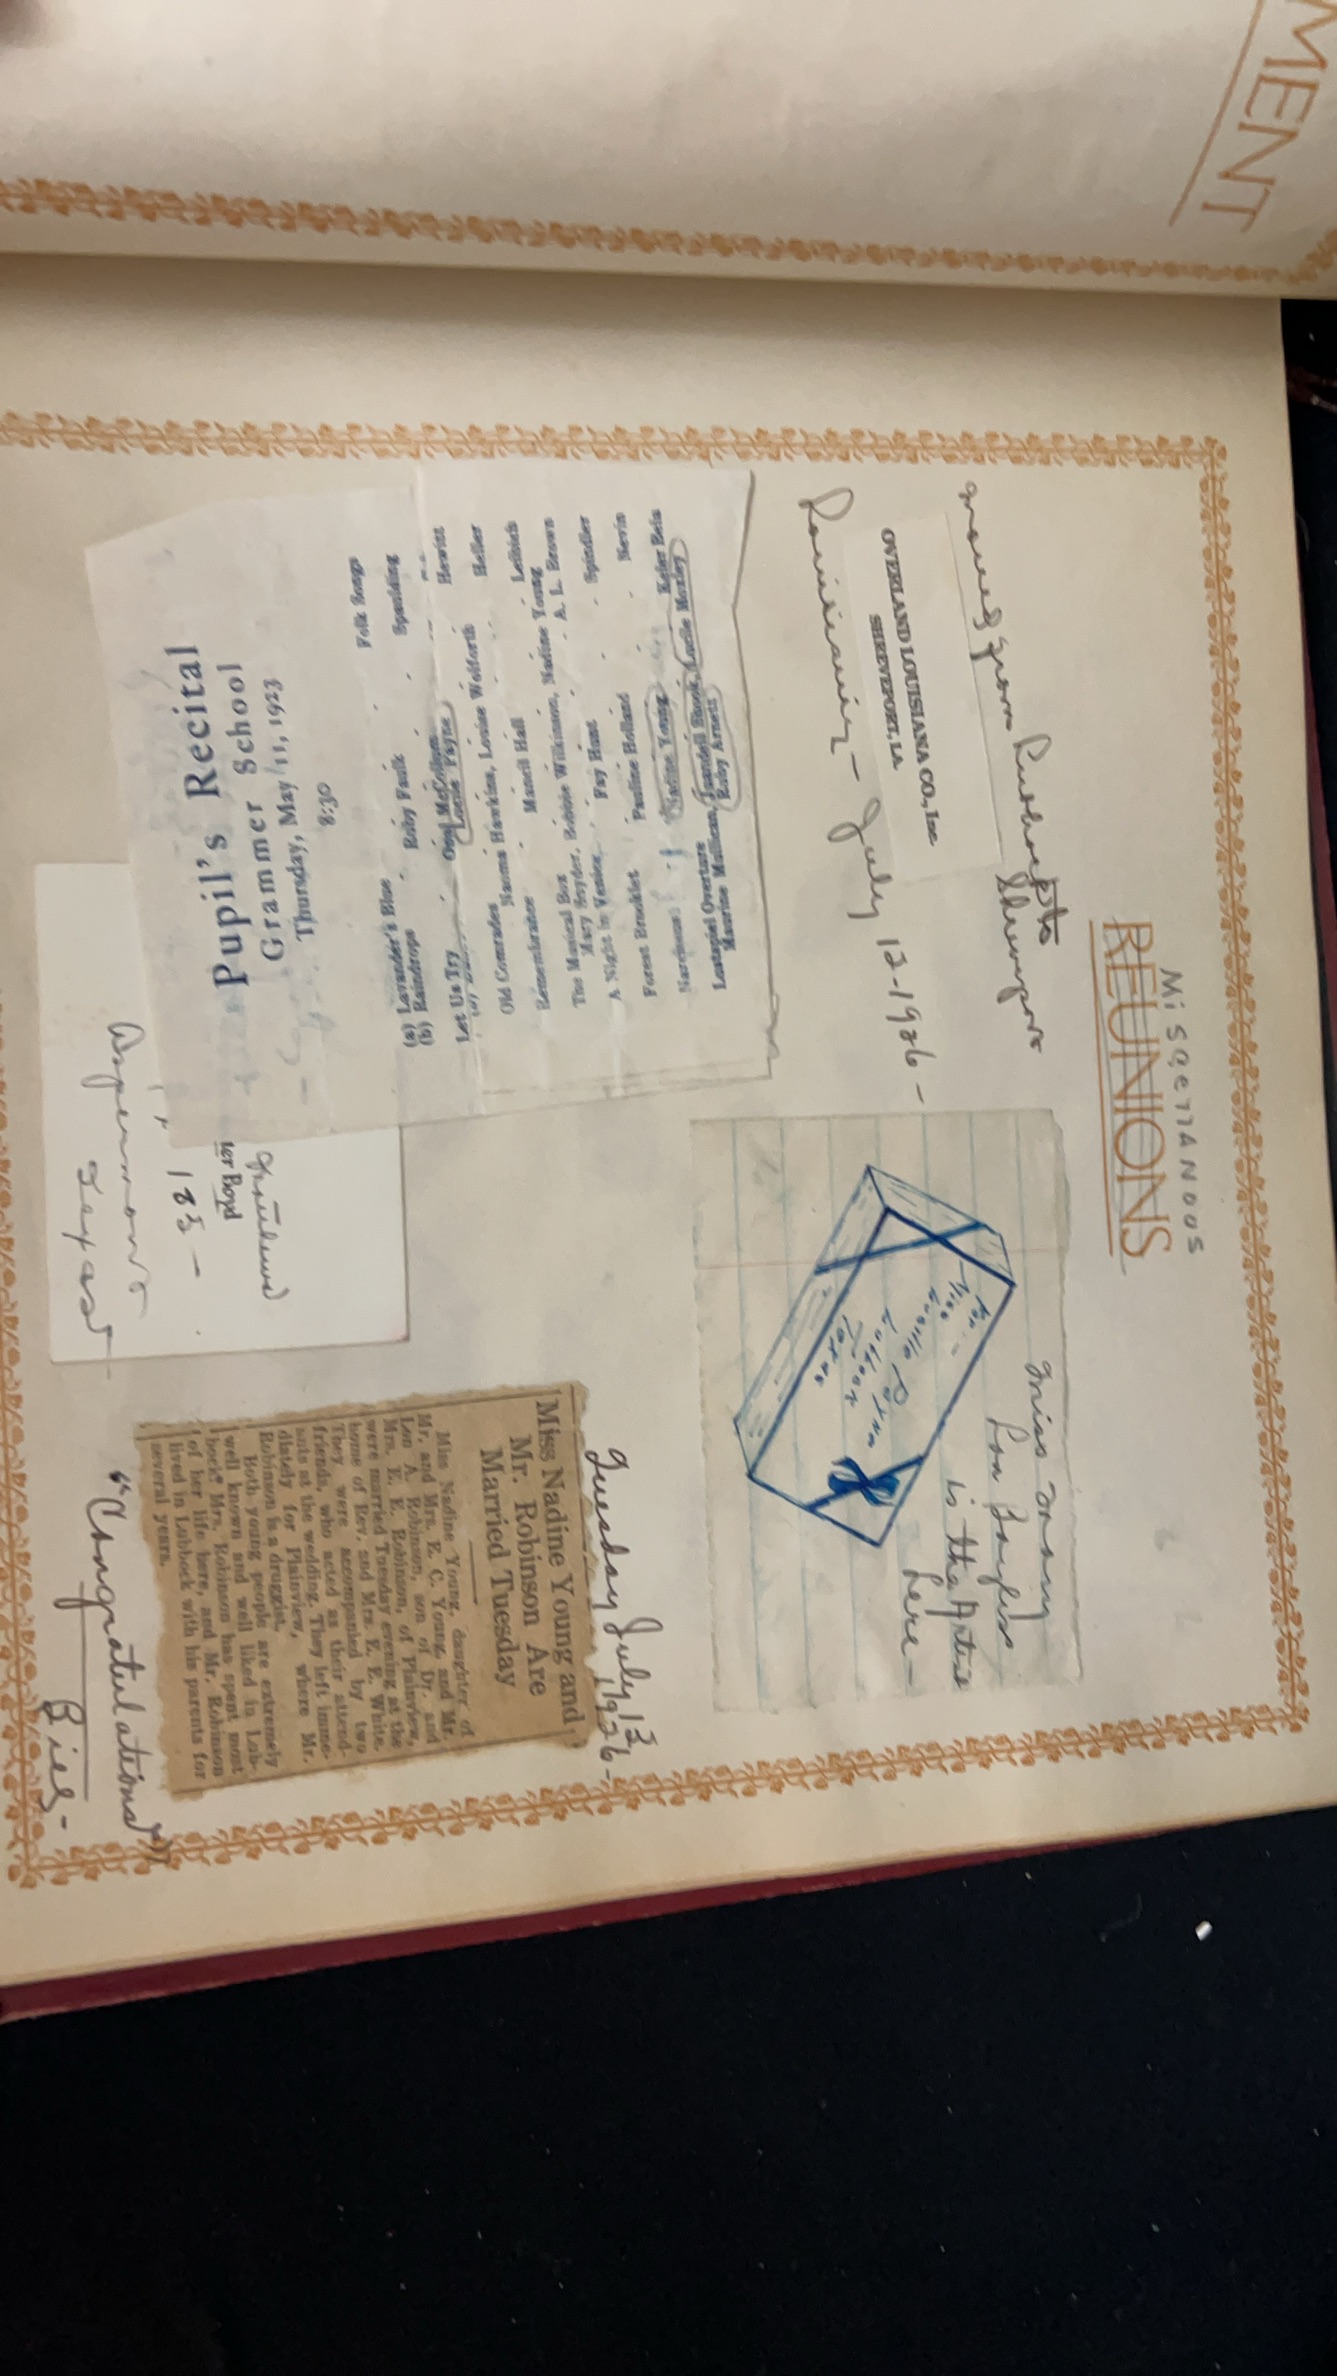 MENT
Miscellaneous
REUNIONS
moved from Lubbock to
Shreveport
OVERLAND LOUISIANA CO., Inc
SHREVEPORT, LA.
Louisiana - July 12-1926 -
Miss Mary
Lou Bayless
is the Artist
here -
Lubbock
Texas
Pupil's Recital
Grammer School
Thursday, May 11, 1923
8:30
Folk Songs
(a) Lavander's Blue
(b) Raindrops . Ruby Faulk . . Spaulding
Let Us Try . . Hewitt
Lucile Payne
Old Comrades . . Heller
Naoma Hawkins, Louise Wolforth
Remembrance . Muncil Hall . Leibich
The Musical Box
Mary Snyder, Bobbie Wilkinson, Nadine Young
A Night in Venice . Fay Hunt . A. L. Brown
. Spindler
Forest Brooklet . Pauline Holland . . Nevin
Narcissus . Nadine Young
Lustspiel Overture . . Keler Bela
Maurine Mullican, Lucile Moxley
Ruby Arnett
125 -
Aspermont
Texas
Tuesday July 13
1926 -
Miss Nadine Young and
Mr. Robinson Are
Married Tuesday
Miss Nadine Young, daughter of
Mr. and Mrs. E. C. Young, and Mr.
Lon A. Robinson, son of Dr. and
Mrs. E. E. Robinson, of Plainview,
were married Tuesday evening at the
home of Rev. and Mrs. E. E. White.
They were accompanied by two
friends, who acted as their attend-
ants at the wedding. They left imme-
diately for Plainview, where Mr.
Robinson is a druggist.
Both young people are extremely
well known and well liked in Lub-
bock. Mrs. Robinson has spent most
of her life here, and Mr. Robinson
lived in Lubbock with his parents for
several years.
"Congratulations"